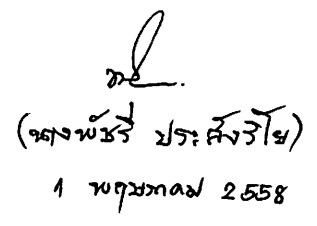 (นางพัชรี ประสังริโย)
1 พฤษภาคม 2558